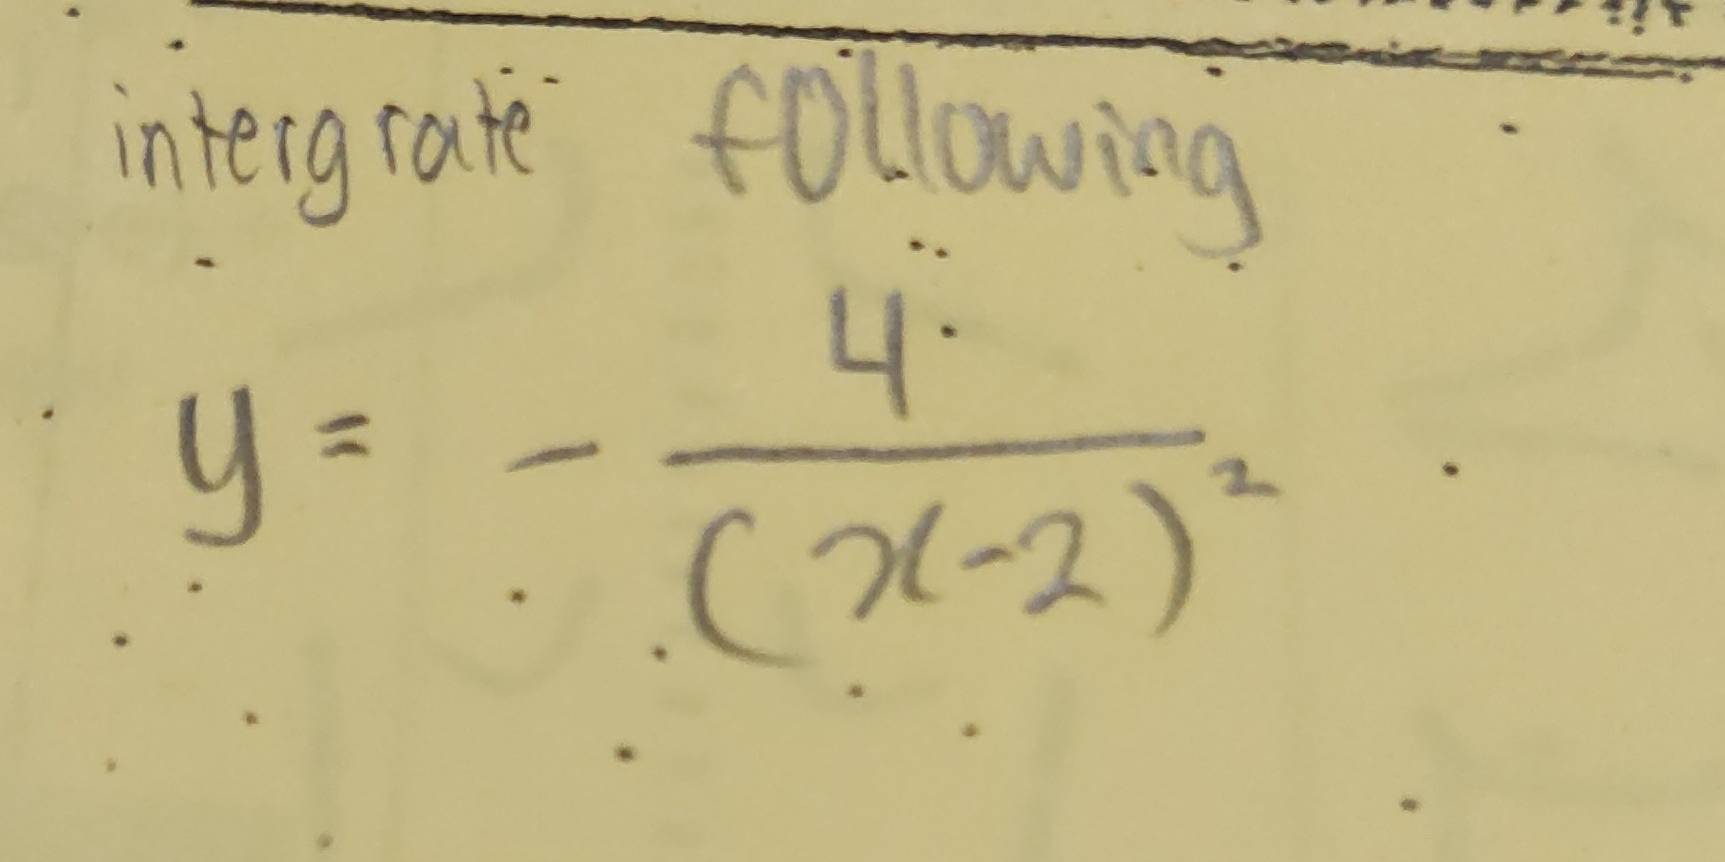 intergrate following
y = - 4 / (x-2)²